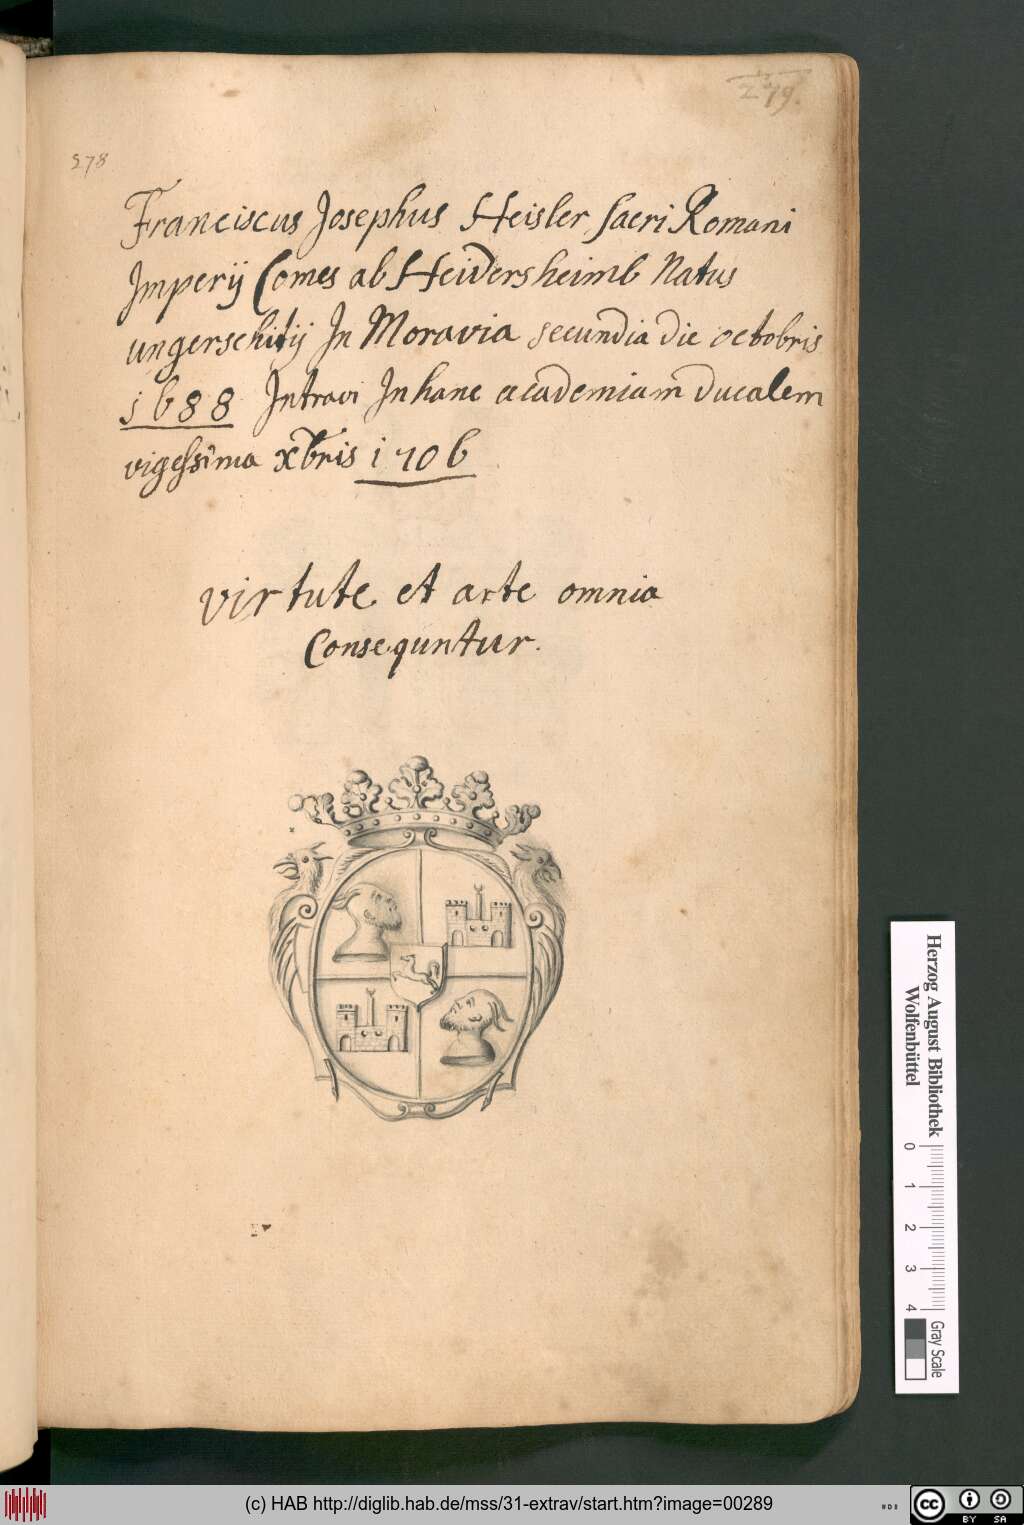 279.
278
Franciscus Josephus Heisler Sacri Romani
Imperij Comes ab Heidersheimb Natus
ungerschitij In Moravia secundia die octobris
1688 Intravi In hanc academiam Ducalem
vigessima xbris 1706
virtute et arte omnia
Consequntur.
Herzog August Bibliothek
Wolfenbüttel
0 1 2 3 4
Gray Scale
(c) HAB http://diglib.hab.de/mss/31-extrav/start.htm?image=00289
cc BY SA